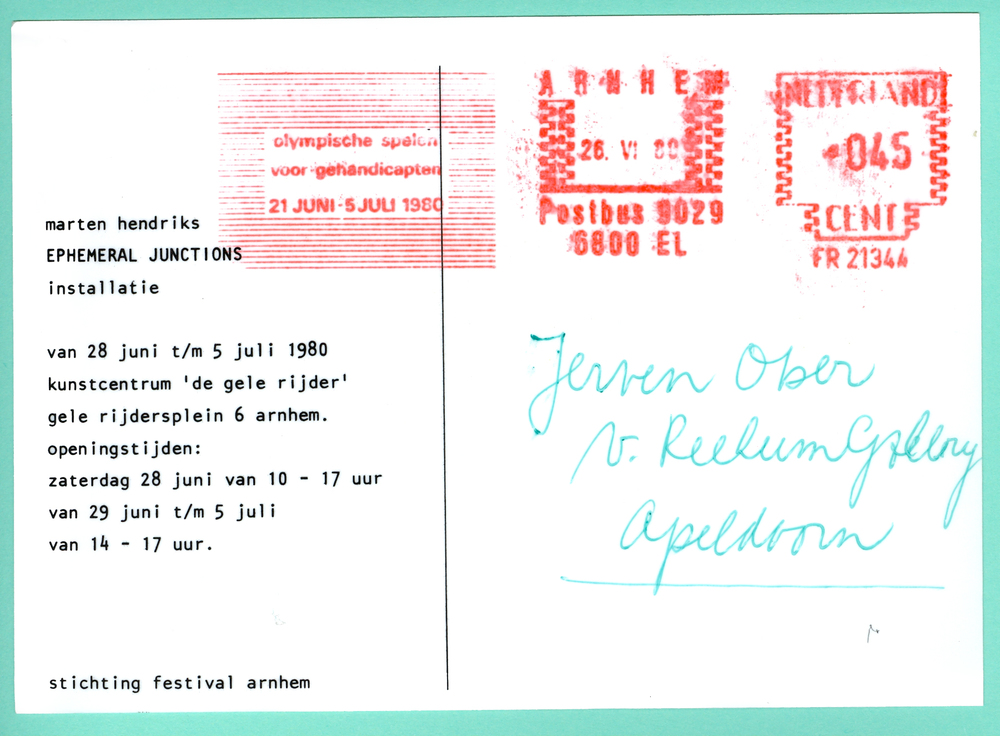 olympische spelen
voor gehandicapten
21 JUNI-5 JULI 1980
ARNHEM
26. VI 80
Postbus 9029
6800 EL
NEDERLAND
045
CENT
FR 21344
marten hendriks
EPHEMERAL JUNCTIONS
installatie
van 28 juni t/m 5 juli 1980
kunstcentrum 'de gele rijder'
gele rijdersplein 6 arnhem.
openingstijden:
zaterdag 28 juni van 10 - 17 uur
van 29 juni t/m 5 juli
van 14 - 17 uur.
stichting festival arnhem
Jerven Ober
v. Reekum Gallery
Apeldoorn